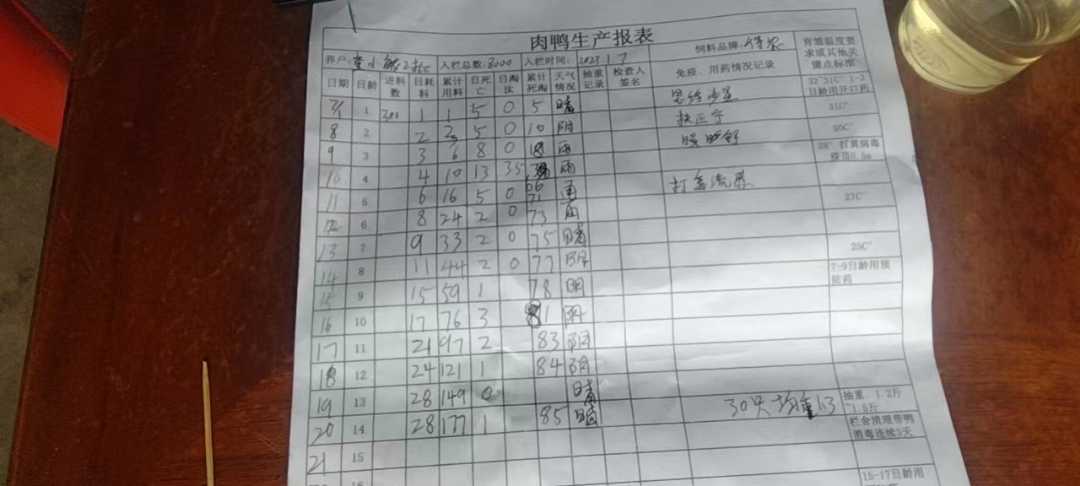 肉鸭生产报表
养户: 入栏总数: 8000 入栏时间: 2023 1 7 饲料品牌:
日期 日龄 进料数 日耗料 累计用料 日死亡 日淘汰 累计死淘 天气情况 抽重记录 检查人签名 免疫、用药情况记录 育雏温度要求或其他关键点标准
7/1 1 1 1 5 0 5 晴 32~31C° 1-2日龄用开口药
8 2 2 3 5 0 10 阴 扶正宁 31C°
9 3 3 6 8 0 18 雨 30C°
10 4 4 10 13 35 雨
11 5 6 16 5 0 71 雨 打禽流感
12 6 8 24 2 0 73 雨 27C°
13 7 9 33 2 0 75 晴
14 8 11 44 2 0 77 阴 25C°
15 9 15 59 1 78 阴 7-9日龄用预防药
16 10 17 76 3 81 阴
17 11 21 97 2 83 阴
18 12 24 121 1 84 阴
19 13 28 149 0 晴
20 14 28 177 1 85 晴 30只均重1.3 抽重:1.2斤~1.5斤
21 15 栏舍清理带鸭消毒连续3天
15-17日龄用